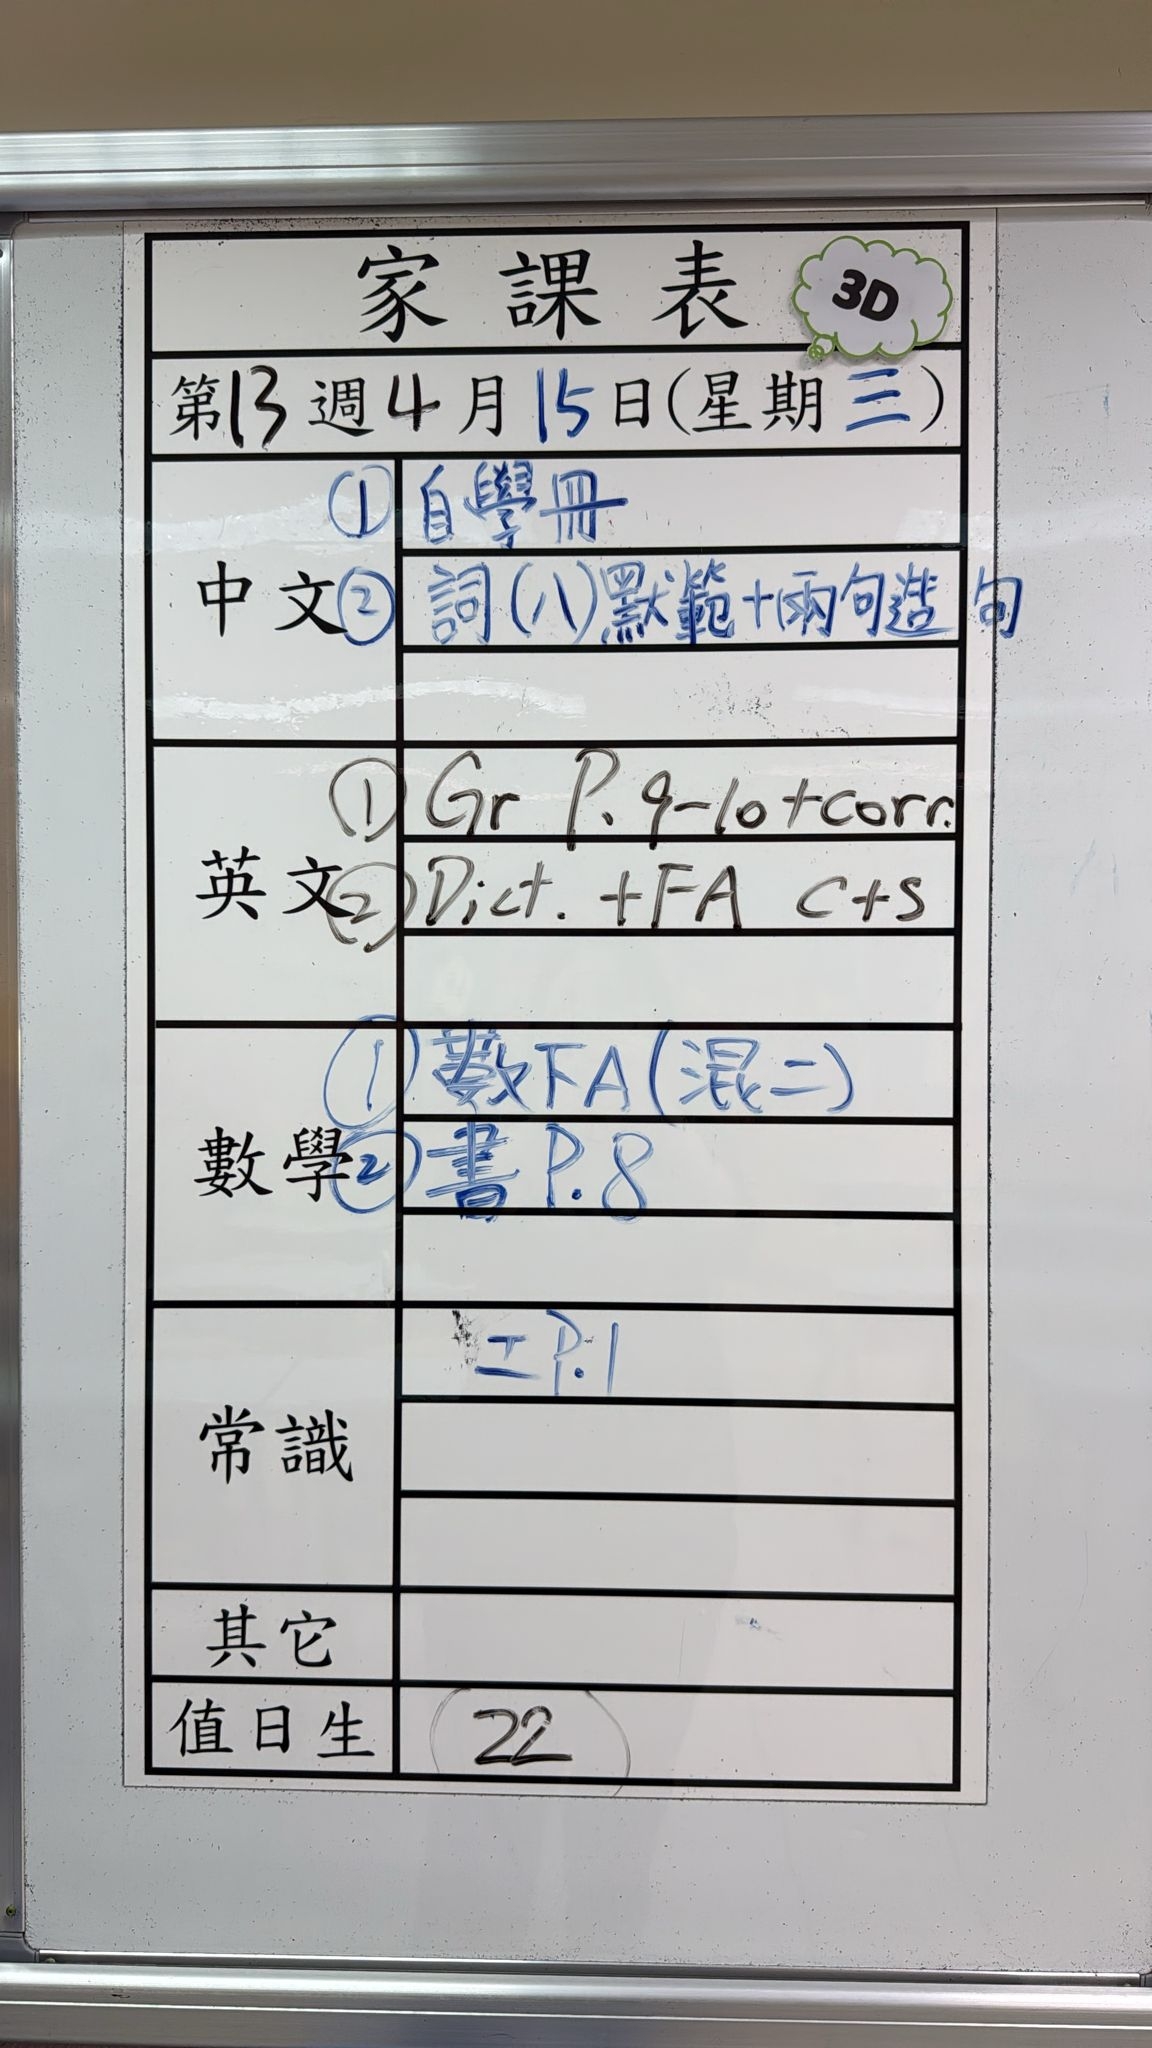 家課表 3D
第13週4月15日(星期三)
中文
① 自學冊
② 詞(八)默範+兩句造句
英文
① Gr P. 9-10+corr.
② Dict. +FA C+S
數學
① 數FA(混二)
② 書 P.8
常識
二 P.1
其它
值日生 22